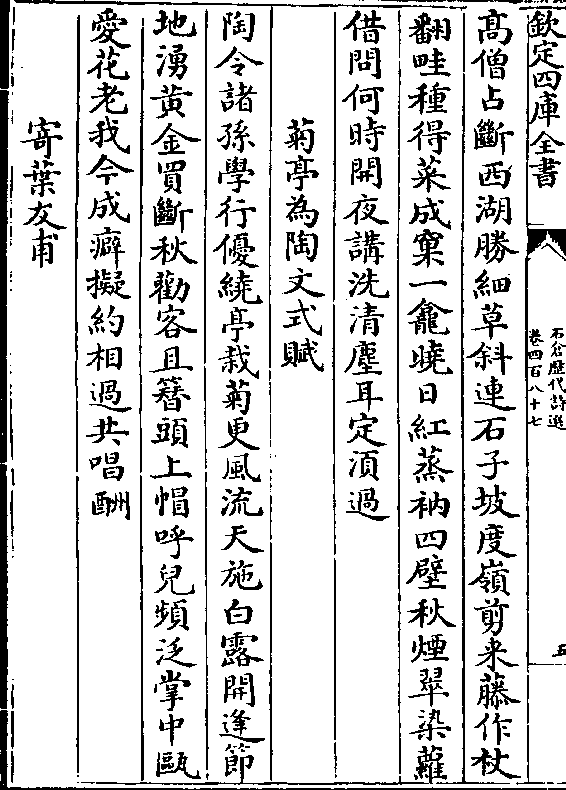 欽定四庫全書
石倉歷代詩選
卷四百八十七
五
髙僧占斷西湖勝細草斜連石子坡度嶺剪来藤作杖
翻畦種得菜成窠一龕曉日紅蒸衲四壁秋煙翠染蘿
借問何時開夜講洗清塵耳定湏過
菊亭為陶文式賦
陶令諸孫學行優繞亭栽菊更風流天施白露開逢節
地湧黃金買斷秋勸客且簪頭上帽呼兒頻泛掌中甌
愛花老我今成癖擬約相過共唱酬
寄葉友甫